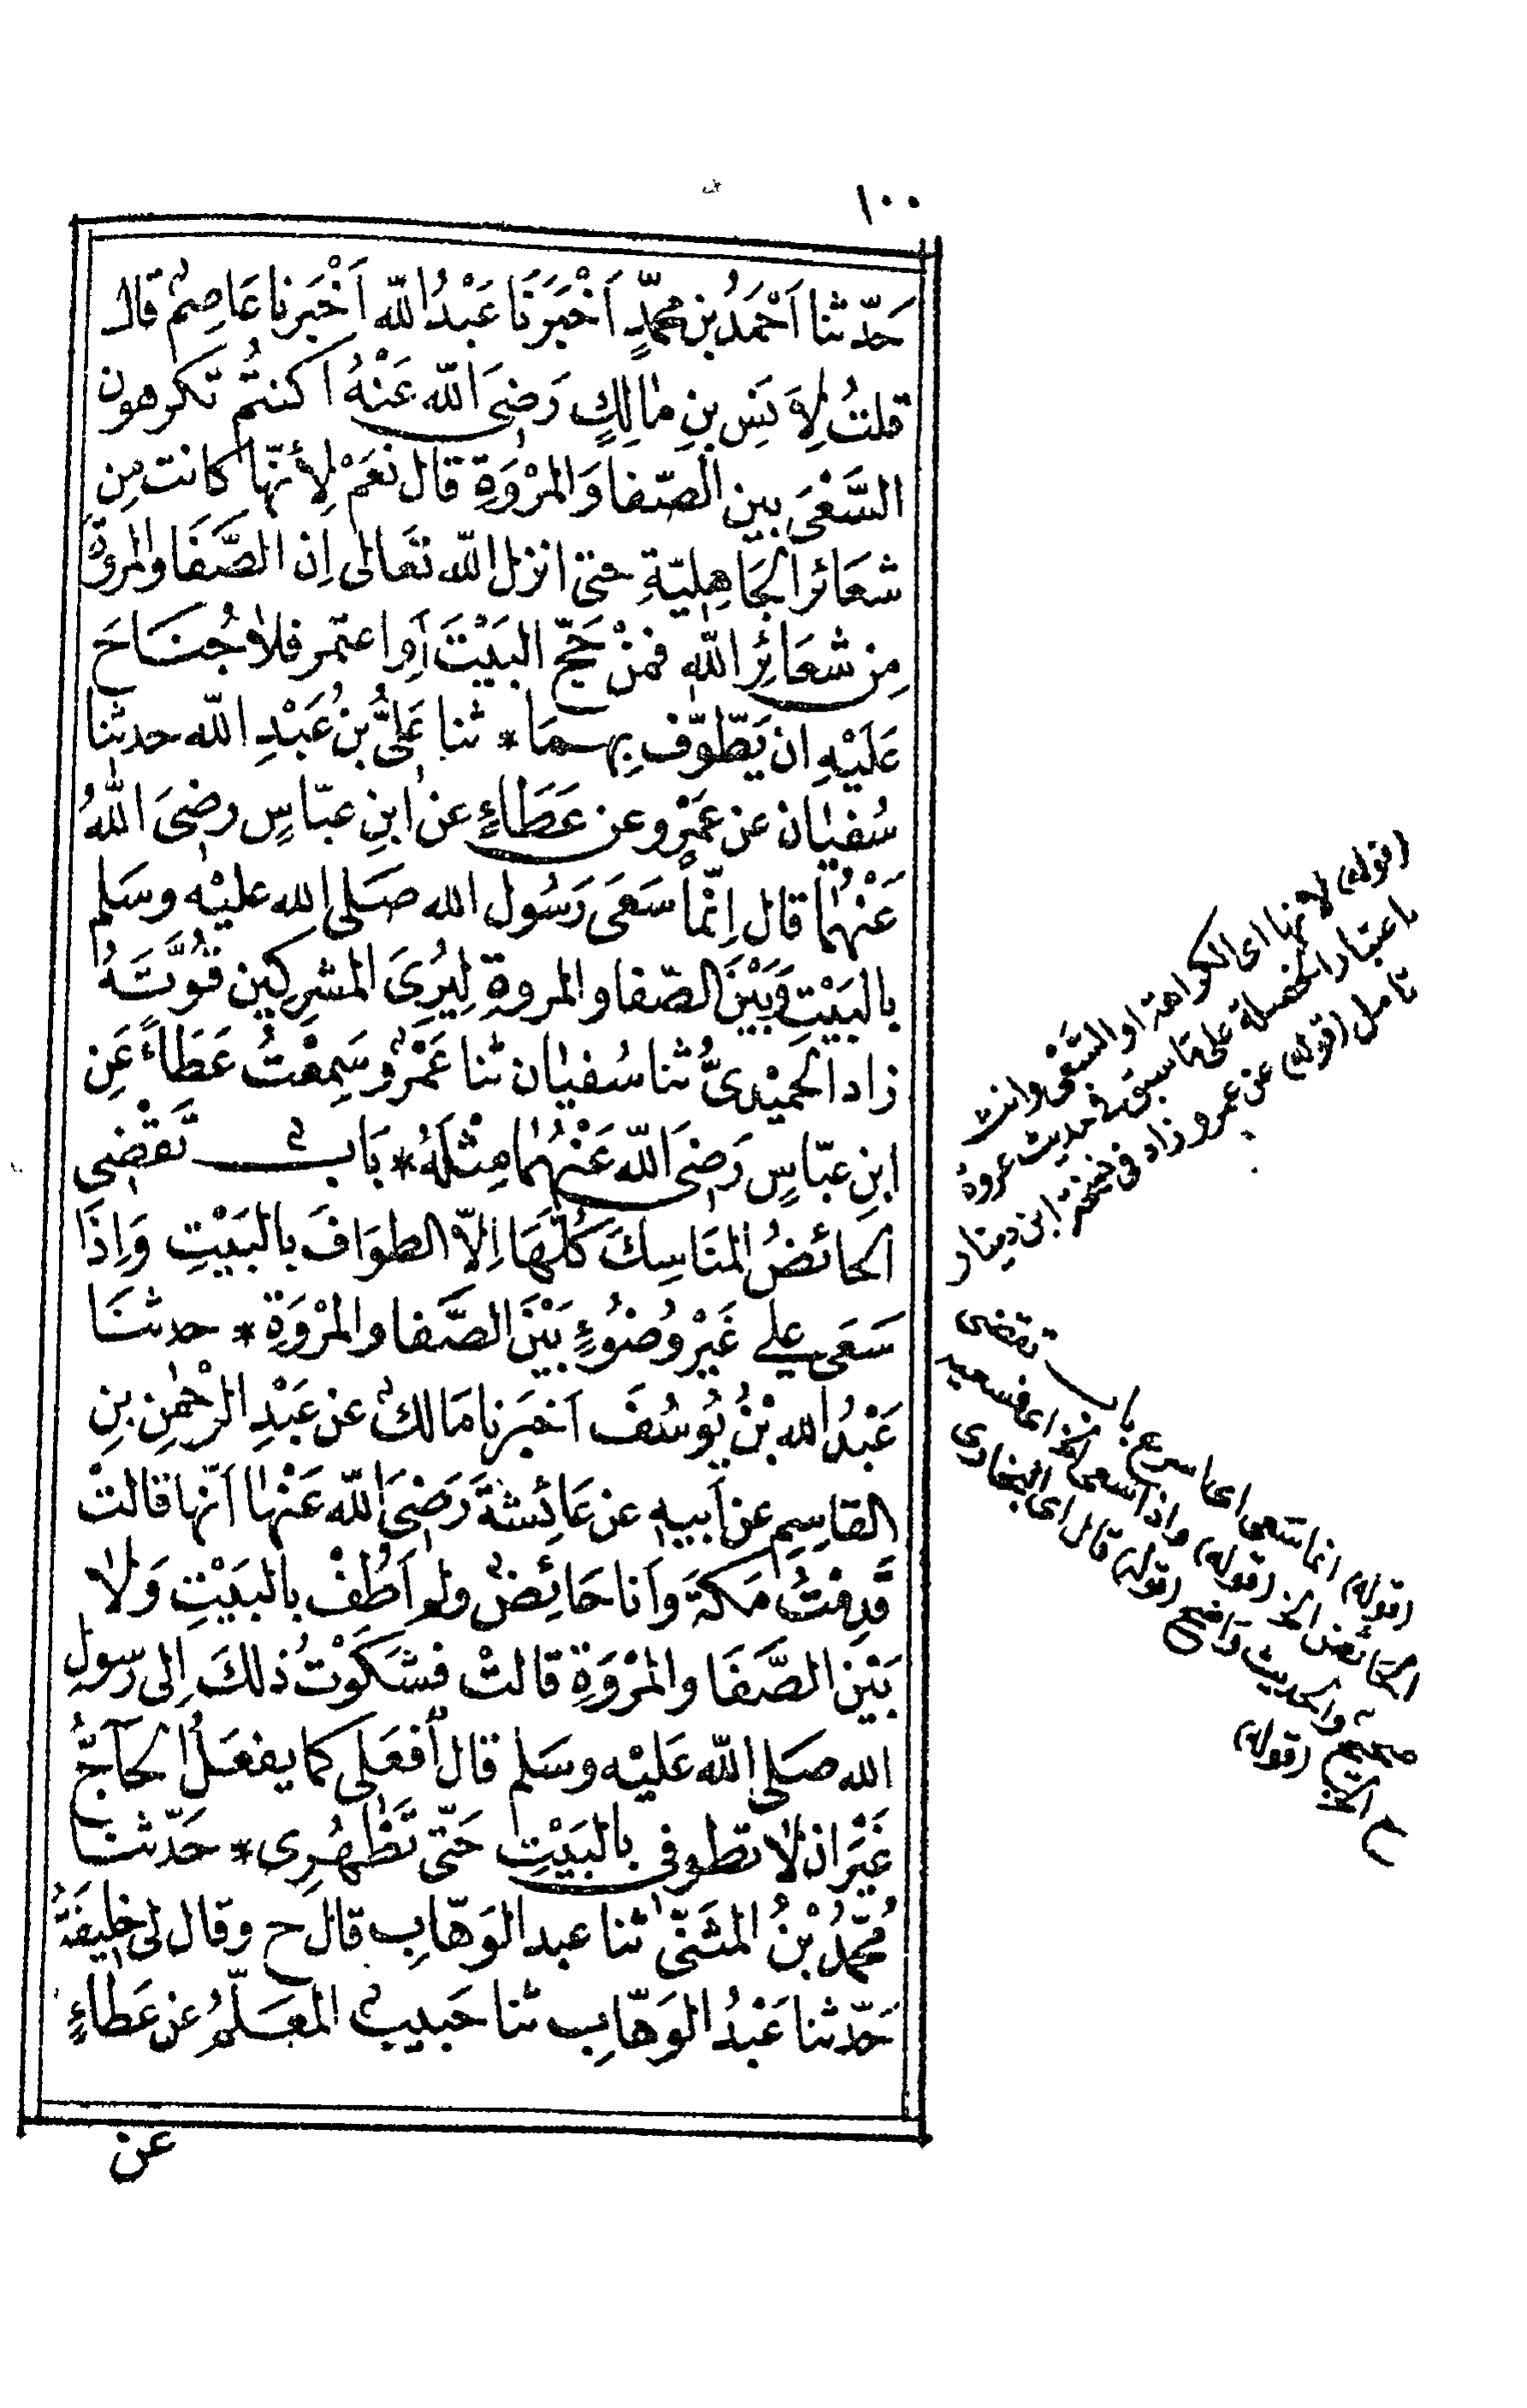 ١٠٠
حَدّثنا اَحْمَدُ بن محمّدٍ اَخْبَرَنَا عَبْدُ اللّه اَخْبَرنا عَاصِمٌ قال
قلتُ لِاَنَسِ بنِ مالِكٍ رَضِىَ اللّه عَنْهُ اَكنتُم تَكرهون
السَّعْىَ بين الصّفا وَالمرْوَةِ قال نعَمْ لِأنّها كانت مِن
شعَائر الجَاهِليّةِ حتى انزل اللّه تعَالى اِن الصَّفَا والمروةَ
مِن شعَائِرِ اللّه فمنْ حَجّ البَيْتَ اَوِ اعتمر فلا جُنَاحَ
عَلَيْهِ ان يَطّوّف بِهِمَا * ثنا عَلىُّ بنُ عَبْدِ اللّه حدثنا
سُفيان عن عَمْرٍو عن عَطَاءٍ عن ابنِ عبّاسٍ رضِىَ اللّهُ
عَنْهُما قال اِنّما سَعَى رَسُول الله صَلى الله عليْه وسَلم
بالبَيْتِ وَبَيْنَ الصّفا والمروةِ لِيُرِىَ المشرِكين قُوَّتَهُ
زاد الحميْدىُّ ثنا سُفيان ثنا عَمْرٌو سَمِعْتُ عَطَاءً عَنِ
ابنِ عبّاسٍ رَضِىَ اللّه عَنْهُما مِثْلَهُ * بَابٌ تَقْضِى
الحَائضُ المنَاسِكَ كُلّهَا اِلاّ الطوَافَ بالبَيْتِ وَاِذَا
سَعَى على غَيْرِ وُضوُءٍ بَيْنَ الصَّفا والمرْوَةِ * حدثنَا
عَبْدُ الله بْنُ يُوسُفَ اَخبَرنا مَالكٌ عن عَبْدِ الرحْمٰنِ بنِ
القاسِمِ عن اَبيهِ عن عَائِشةَ رَضِىَ اللّه عَنْها اَنّها قالتْ
قَدِمْتُ مَكةَ وأنا حَائِضٌ ولم اَطُفْ بالبَيْتِ وَلا
بَيْنَ الصَّفَا والمرْوَةِ قالتْ فشكَوْتُ ذلكَ اِلى رسولِ
الله صَلى اللّه عَليْه وسَلم قال اُفعَلى كما يفعَلُ الحَاجُّ
غَيْرَ ان لا تطوفى بالبَيْتِ حَتّى تَطْهُرِى * حَدّثنا
مُحمّدُ بْنُ المثَنّى ثنا عبد الوَهّابِ قال ح وقال لى خليفَةُ
حَدّثنا عَبْدُ الوَهّابِ ثنا حَبيبٌ المعَلّمُ عن عَطاءٍ
عن
(قوله) لانها اى الكراهة او السَّعْى وانث
باعتبار الخصلة على مَا سبق فى حديث عروة
تامل (قوله) عن عمرو زاد فى نسخة ابن دينار
باب تقضى
(قوله) انما سَعى اى اسرع
الحَائض الخ (قوله) واذا سعى الخ اى فسعيه
صحيح والحديث واضح (قوله) قال اى البخارى
ح الخ (قوله)